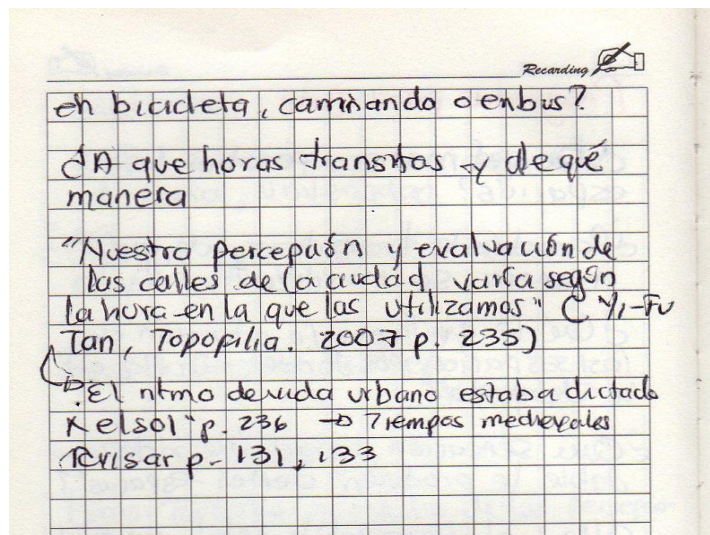 Recarding
en bicicleta, caminando o en bus?
¿A que horas transitas y de qué
manera
"Nuestra percepción y evaluación de
las calles de la ciudad varía según
la hora en la que las utilizamos" (Yi-Fu
Tan, Topofilia. 2007 p. 235)
. El ritmo de vida urbano estaba dictado
x el sol" p. 236 → Tiempos medievales
Revisar p. 131, 133